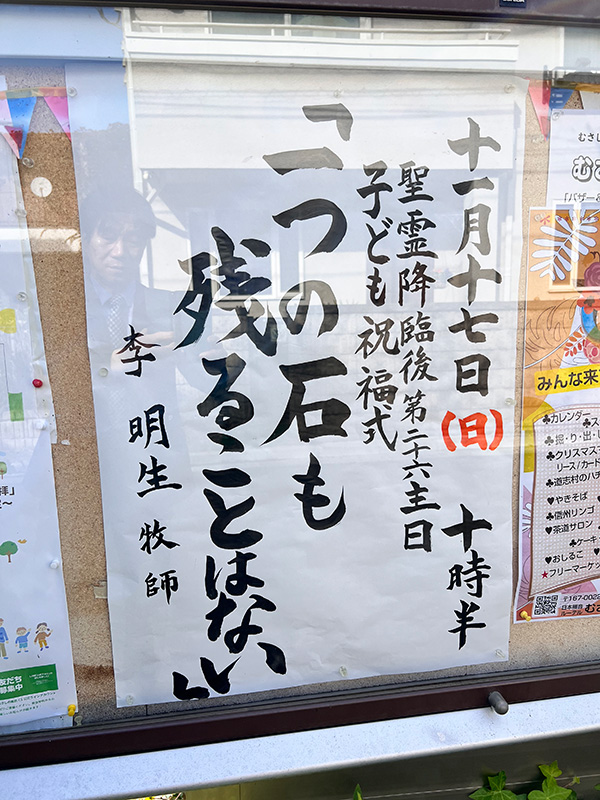 十一月十七日(日) 十時半
聖霊降臨後第二十六主日
子ども祝福式
「一つの石も
残ることはない」
李 明生 牧師
むさし
「バザー
みんな来
♣カレンダー
♣掘・り・出・し
♣クリスマス
リース/カード
♣道志村のハチ
♥やきそば
♣信州リンゴ
♥茶道サロン
♣ケーキ
♥おしるこ
★フリーマーケッ
〒167-002
日本福音
ルーテル むさ
拝」
友だち
募集中